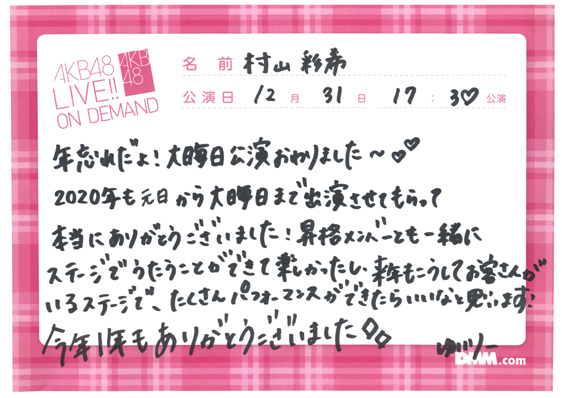 AKB48
LIVE!!
ON DEMAND
AKB
48
名前 村山彩希
公演日 12月31日 17:30公演
年忘れだよ!大晦日公演おわりました〜♡♡
2020年も元日から大晦日まで出演させてもらって
本当にありがとうございました!昇格メンバーとも一緒に
ステージでうたうことができて楽しかったし、来年もこうしてお客さんが
いるステージで、たくさんパフォーマンスができたらいいなと思います!
今年1年もありがとうございました◇◇
ゆいりー
DMM.com